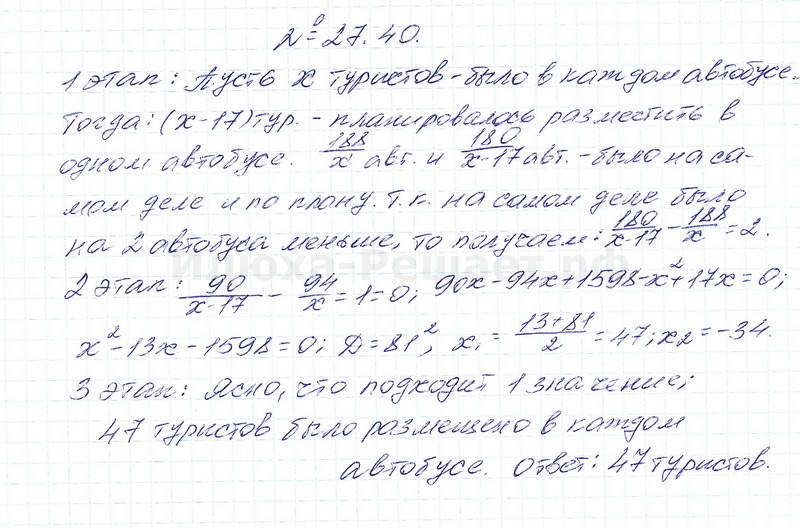 № 27.40.
1 этап: Пусть x туристов - было в каждом автобусе.
Тогда: (x-17) тур. - планировалось разместить в
одном автобусе. 188/x авт. и 180/x-17 авт. - было на са-
мом деле и по плану. Т.к. на самом деле было
на 2 автобуса меньше, то получаем: 180/x-17 - 188/x = 2.
Илюха-Решает.рф
2 этап: 90/x-17 - 94/x = 1 = 0; 90x-94x+1598-x²+17x=0;
x²-13x-1598=0; D=81², x₁ = 13+81/2 = 47; x₂ = -34.
3 этап: Ясно, что подходит 1 значение;
47 туристов было размещено в каждом
автобусе. Ответ: 47 туристов.